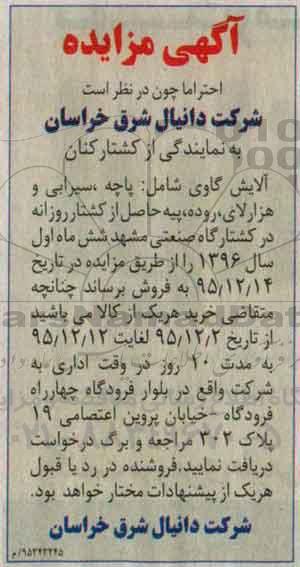 آگهی مزایده
احتراما چون در نظر است
شرکت دانیال شرق خراسان
به نمایندگی از کشتار کنان
آلایش گاوی شامل: پاچه ،سیرابی و
هزارلای،روده،پیه حاصل از کشتار روزانه
در کشتارگاه صنعتی مشهد شش ماه اول
سال ۱۳۹۶ را از طریق مزایده در تاریخ
۹۵/۱۲/۱۴ به فروش برساند چنانچه
متقاضی خرید هریک از کالا می باشید
از تاریخ ۹۵/۱۲/۲ لغایت ۹۵/۱۲/۱۲
به مدت ۱۰ روز در وقت اداری به
شرکت واقع در بلوار فرودگاه چهارراه
فرودگاه -خیابان پروین اعتصامی ۱۹
پلاک ۳۰۲ مراجعه و برگ درخواست
دریافت نمایید.فروشنده در رد یا قبول
هریک از پیشنهادات مختار خواهد بود.
شرکت دانیال شرق خراسان
۹۵۲۴۲۲۴۵/م